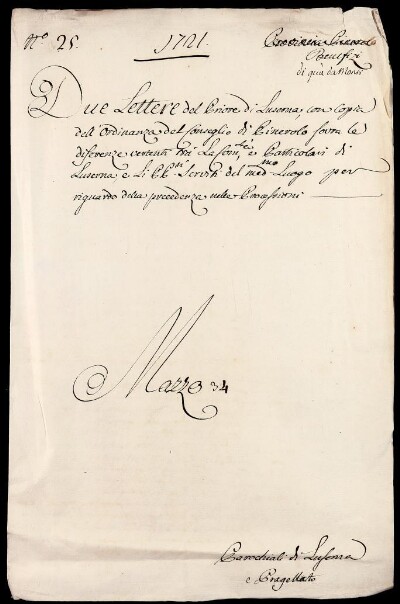 N.º 25.
1721.
Provincia Pinerolo
Benefizi
di quà da Monti
Due Lettere del Priore di Luserna, con copia
dell'Ordinanza del Consiglio di Pinerolo sovra le
diferenze vertenti trà Le Com.tà e Particolari di
Luserna e Li PP.ri Serviti del med.mo Luogo per
riguardo della precedenza nelle Processioni
Mazzo 34
Parochiali di Luserna
e Pragellato